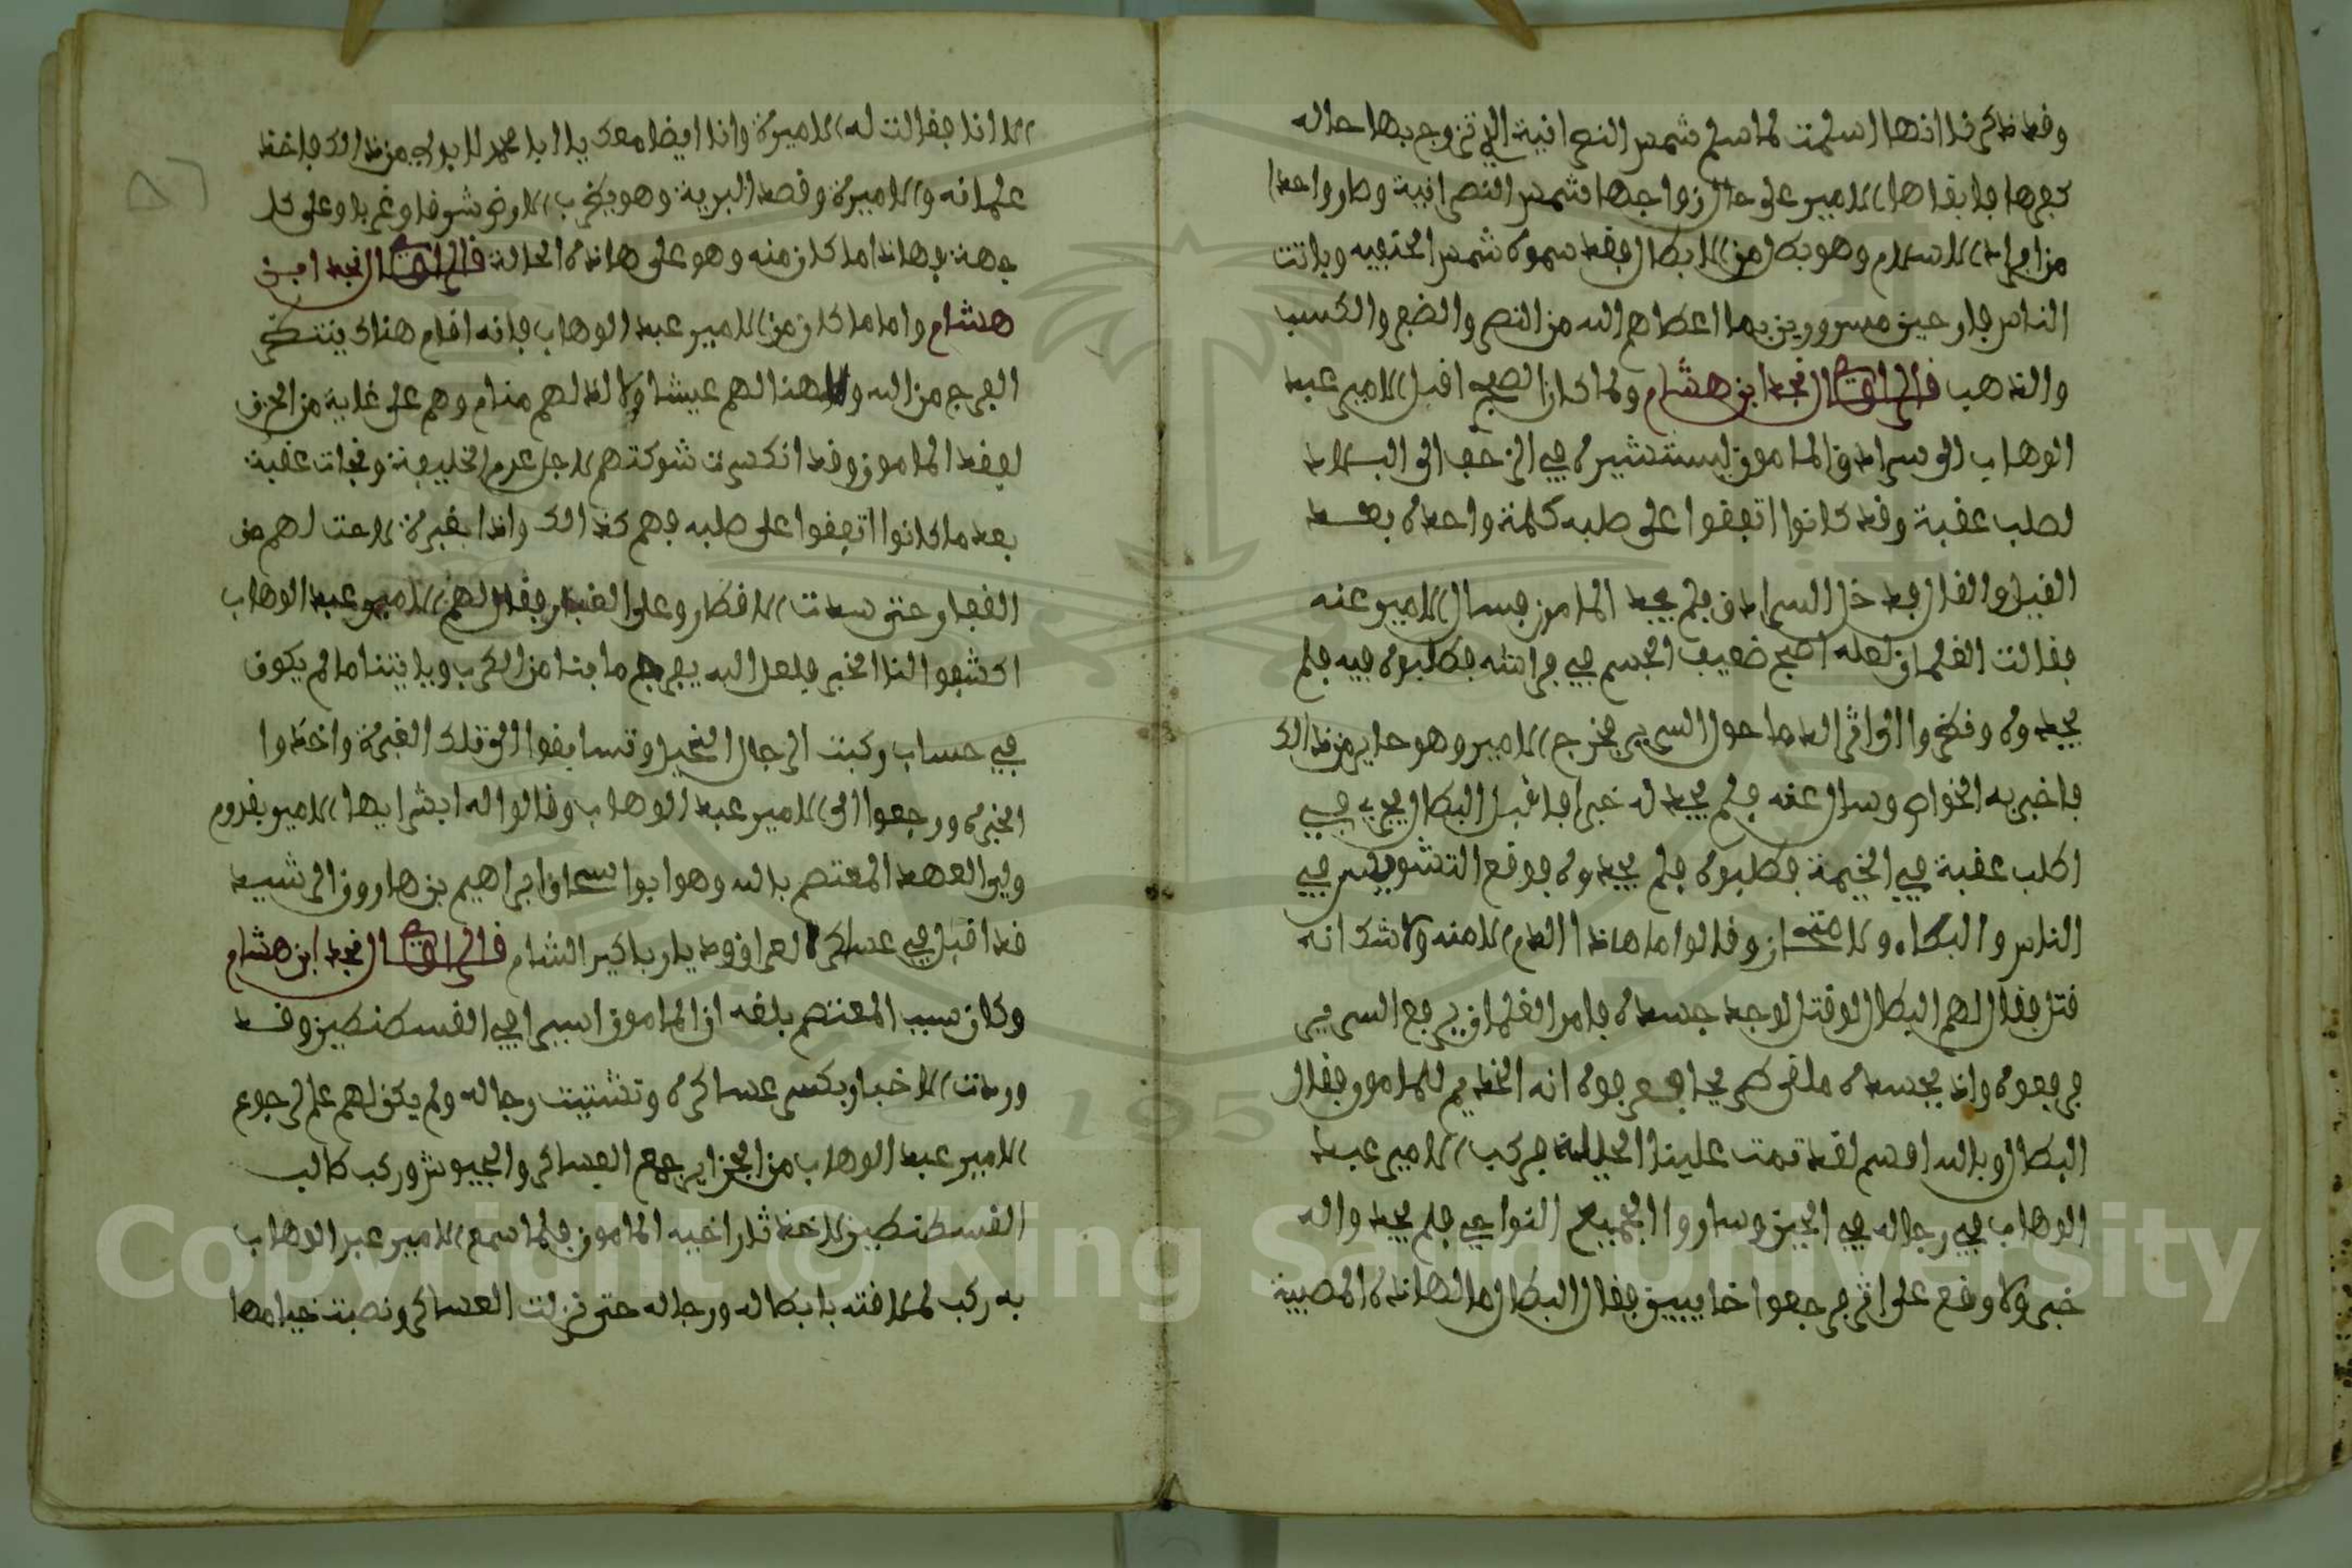 وقد ذكرنا انها اسلمت لما اسلم شمس النصرانية الذي تزوج بها خاله
كفرها فابقاها الامير على حال زواجها شمس النصرانية وصار واحدا
من افراد الاسلام وهو بطل من الابطال فقد سموه شمس الحنيفيه وباتت
الناس فارحين مسرورين بما اعطاهم الله من النصر والضفر والكسب
والذهب قال الراوي النجد ابن هشام ولما كان الصبح اقبل الامير عبد
الوهاب الى سرادق المامون ليستشيره في الزحف الى البلاد
لطلب عقبة وقد كانوا اتفقوا على طلبه كلمة واحده بعد
القيل والقال فدخل السرادق فلم يجد المامون فسال الامير عنه
فقالت الغلمان لعله اصبح ضعيف الجسم في فراشه فطلبوه فيه فلم
يجدوه ونظروا الى اثر الدما حول السرير فخرج الامير وهو حاير من ذالك
فاخبر به الخواص وسال عنه فلم يجد له خبرا فاقبل البطال يجري في
اطلب عقبة في الخيمة فطلبوه فلم يجدوه فوقع التشويش في
الناس والبكاء والامتحان وقالوا ما هاذا الدم الا منه ولا شك انه
قتل فقال لهم البطال لو قتل لوجد جسده فامر الغلمان برفع السرير
فرفعوه واذ بجسده ملقى طريحا فعرفوه انه الخديم للمامون فقال
البطال وبالله اقسم لقد تمت علينا الحيلة فركب الامير عبد
الوهاب في رجاله في الحين وساروا الجميع النواحي فلم يجدوا له
خبر ولا وقع على اثر فرجعوا خايبين فقال البطال ما لهاذه المصيبة
الا انا فقالت له الاميرة وانا ايضا معك يا ابا محمد لا بد لي من ذالك فاخذ
غلمانه والاميرة وقصد البرية وهو يضرب الارض شرقا وغربا وعلى كل
جهة فهاذا ما كان منه وهو على هاذه الحالة قال الراوي النجد ابن
هشام واما ما كان من الامير عبد الوهاب فانه اقام هناك ينتظر
الفرج من الله ولا هنا لهم عيشا ولا لذ لهم منام وهم على غاية من الحزن
لفقد المامون وقد انكسرت شوكتهم لاجل عدم الخليفة ونجات عقبة
بعد ما كانوا اتفقوا على طلبه فهم كذالك واذا بغبرة لاحت لهم من
القفار حتى سدت الاقطار وعلى الغبار فقال لهم الامير عبد الوهاب
اكشفوا لنا الخبر فلعل الله يفرج ما بنا من الكرب وياتينا ما لم يكون
في حساب ركبت الرجال الخيل وتسابقوا الى تلك الغبرة واخذوا
الخبر ورجعوا الى الامير عبد الوهاب وقالوا له ابشر ايها الامير بقدوم
ولي العهد المعتصم بالله وهو ابوا اسحاق ابراهيم بن هارون الرشيد
قد اقبل في عساكر العراق وديار باكير الشام قال الراوي النجد ابن هشام
وكان سبب المعتصم بلغه ان المامون اسيرا في القسطنطين وقد
وردت الاخبار بكسر عساكره وتشتيت رجاله ولم يكن لهم علم لرجوع
الامير عبد الوهاب من الجزاير جمع العساكر والجيوش وركب طالب
القسطنطين لاخذ ثار اخيه المامون فلما سمع الامير عبد الوهاب
به ركب لملاقته بابطاله ورجاله حتى نزلت العساكر ونصبت خيامها
Copyright © King Saud University